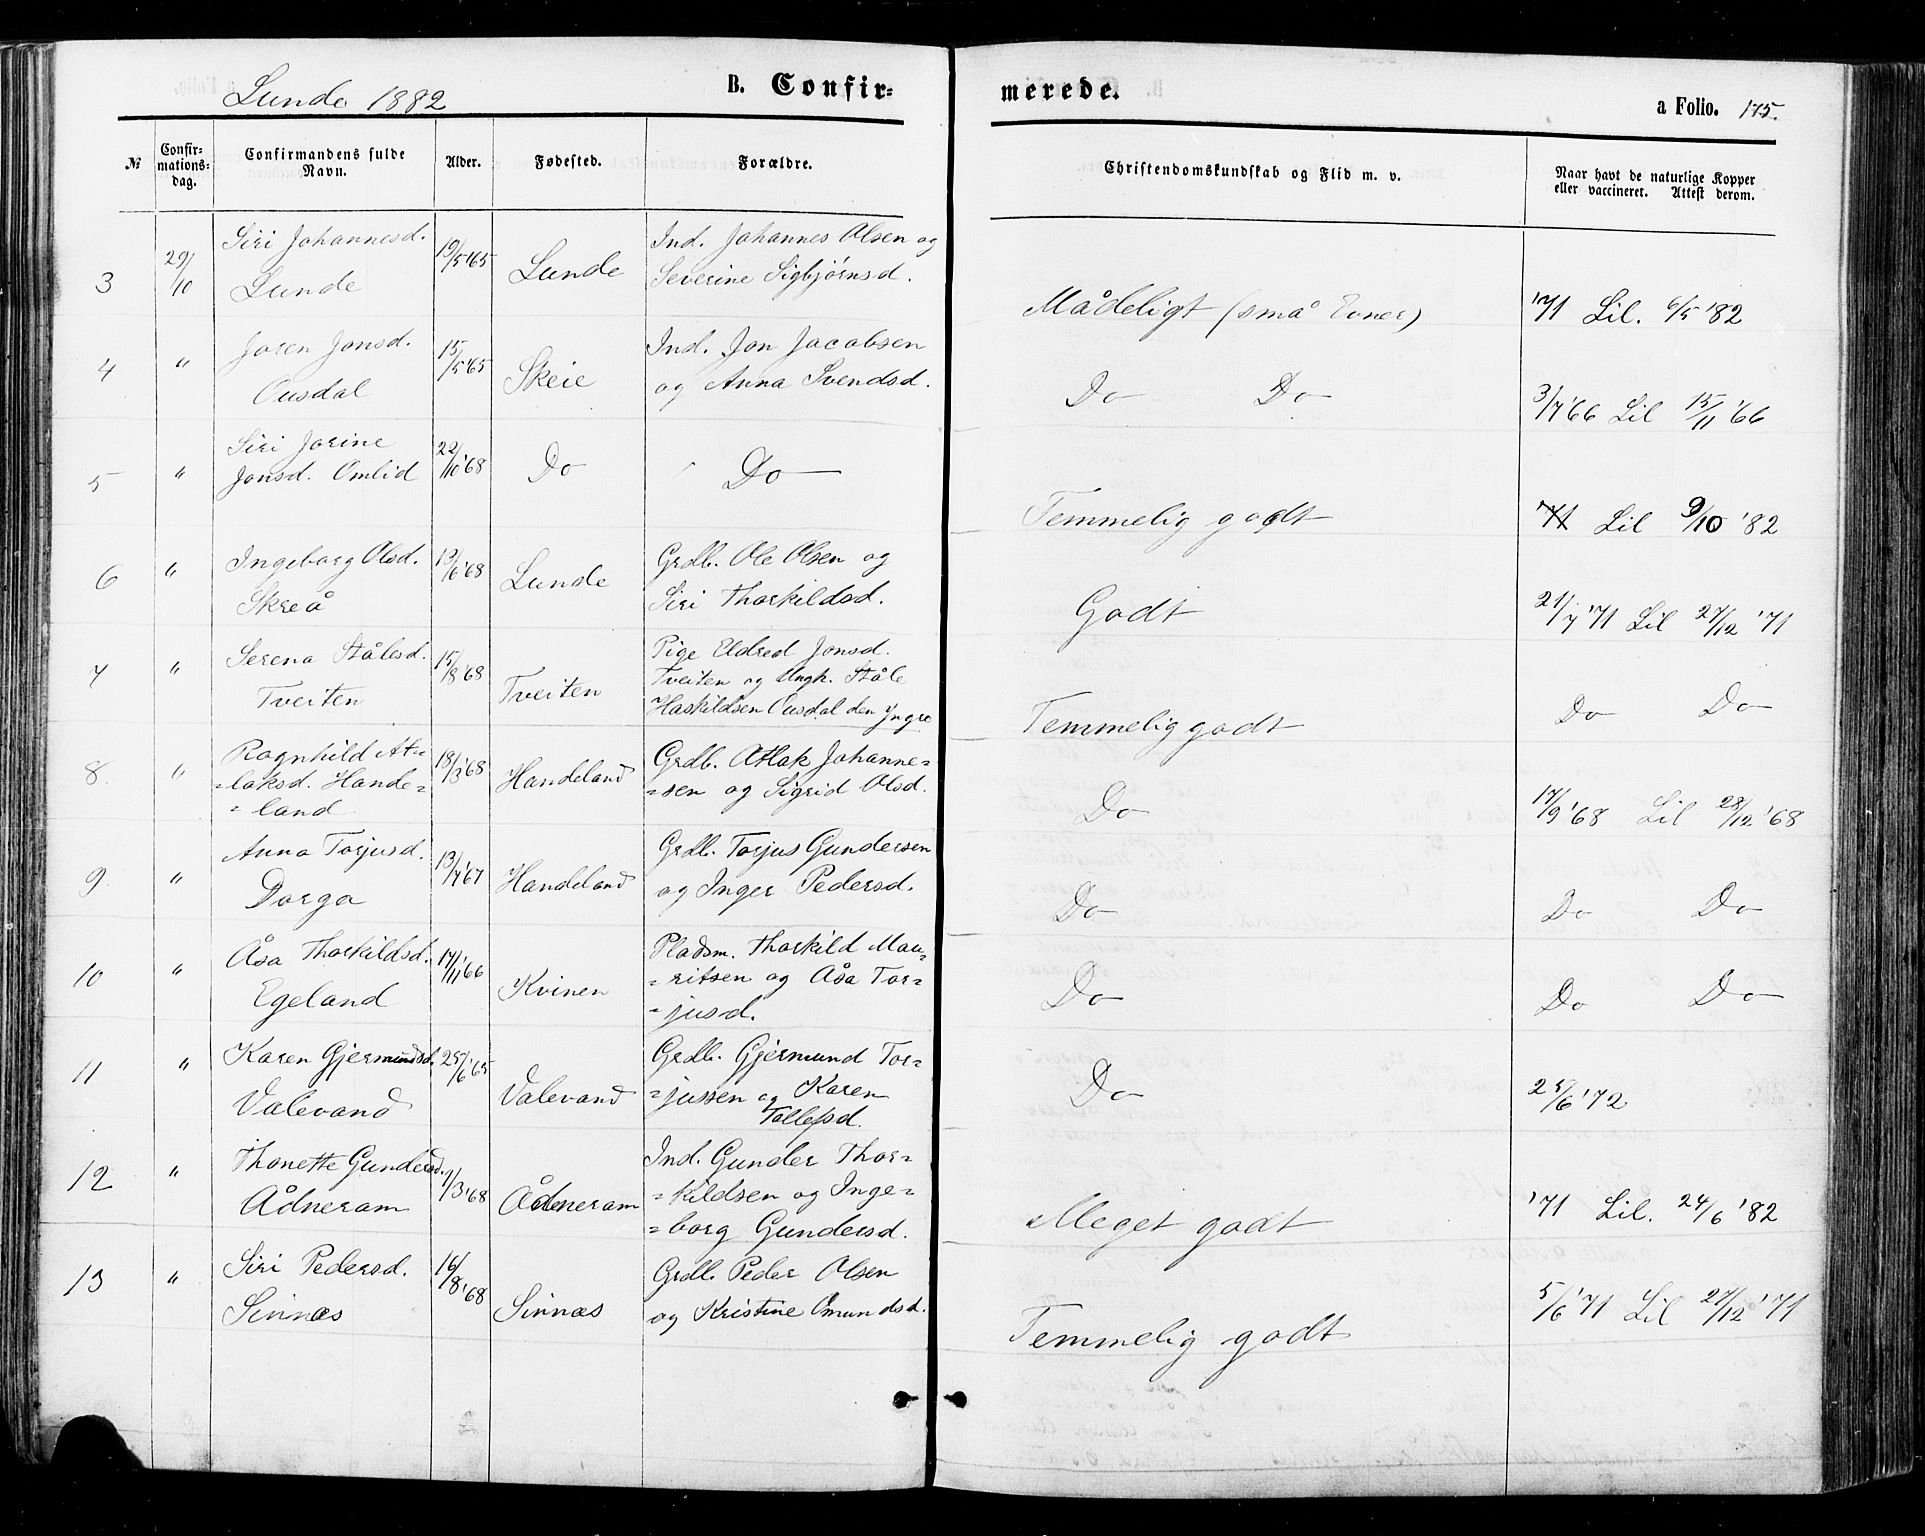 Lunde 1882
B. Confir-
merede.
a Folio. 175.
№
Confir-
mations-
dag.
Confirmandens fulde
Navn.
Alder.
Fødested.
Forældre.
Christendomskundskab og Flid m. v.
Naar havt de naturlige Kopper
eller vaccineret. Attest derom.
3 29/10 Siri Johannesd. 19/5'65 Lunde Ind. Johannes Olsen og
Lunde Severine Sigbjørnsd.
Mådeligt (små Evner) '71 Lil. 6/5 '82
4 " Joren Jonsd. 15/5'65 Skeie Ind. Jon Jacobsen
Ousdal og Anna Svendsd.
Do Do 3/7'66 Lil 15/11 '66
5 " Siri Jorine 22/10'68 Do Do
Jonsd. Omlid
Temmelig godt '71 Lil 9/10 '82
6 " Ingeborg Olsd. 13/6'68 Lunde Grdb. Ole Olsen og
Skreå Siri Thorkildsd.
Godt 21/7 '71 Lil 27/12 '71
7 " Serena Stålesd. 15/8'68 Tveiten Pige Eldred Jonsd.
Tveiten Tveiten og Ungk. Ståle
Haskildsen Ousdal den Yngre
Temmelig godt Do Do
8. " Ragnhild At= 18/3'68 Handeland Grdb. Atlak Johanne=
=laksd. Hande= =sen og Sigrid Olsd.
=land
Do 17/9 '68 Lil 28/12 '68
9 " Anna Torjusd. 13/7'67 Handeland Grdb. Torjus Gundersen
Dorga og Inger Pedersd.
Do Do Do
10 " Åsa Thorkildsd. 17/11'66 Kvinen Pladsm. Thorkild Mau=
Egeland =ritsen og Åsa Tor=
=jusd.
Do Do Do
11 " Karen Gjermundsd. 25/6'65 Valevand Grdb. Gjermund Tor=
Valevand =jussen og Karen
Tollefsd.
Do 25/6 '72
12 " Thonette Gundersd. 1/3'68 Ådneram Ind. Gunder Thor=
Ådneram =kildsen og Inge=
=borg Gundersd.
Meget godt '71 Lil. 24/6 '82
13 " Siri Pedersd. 16/8'68 Sinnæs Grdb. Peder Olsen
Sinnæs og Kristine Omundsd.
Temmelig godt 5/6 '71 Lil 27/12 '71